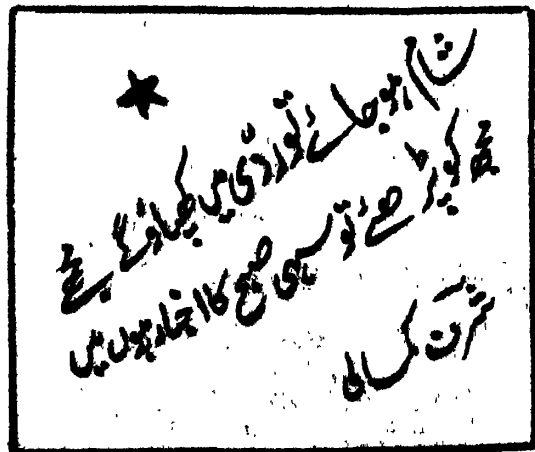 شام ہو جائے تو ردّی میں بِک جاؤ گے مجھے
مجھ کو پڑھئے تو سہی صبح کا اخبار ہوں میں
شرن کمالی